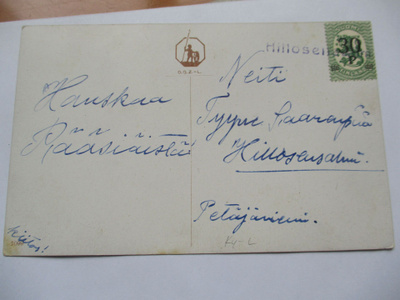 Hauskaa
Pääsiäistä!
Kiitos!
Hillosens
30
P
Neiti
Tyyne Saarenpää
Hillosensalmi.
Petäjäniemi.